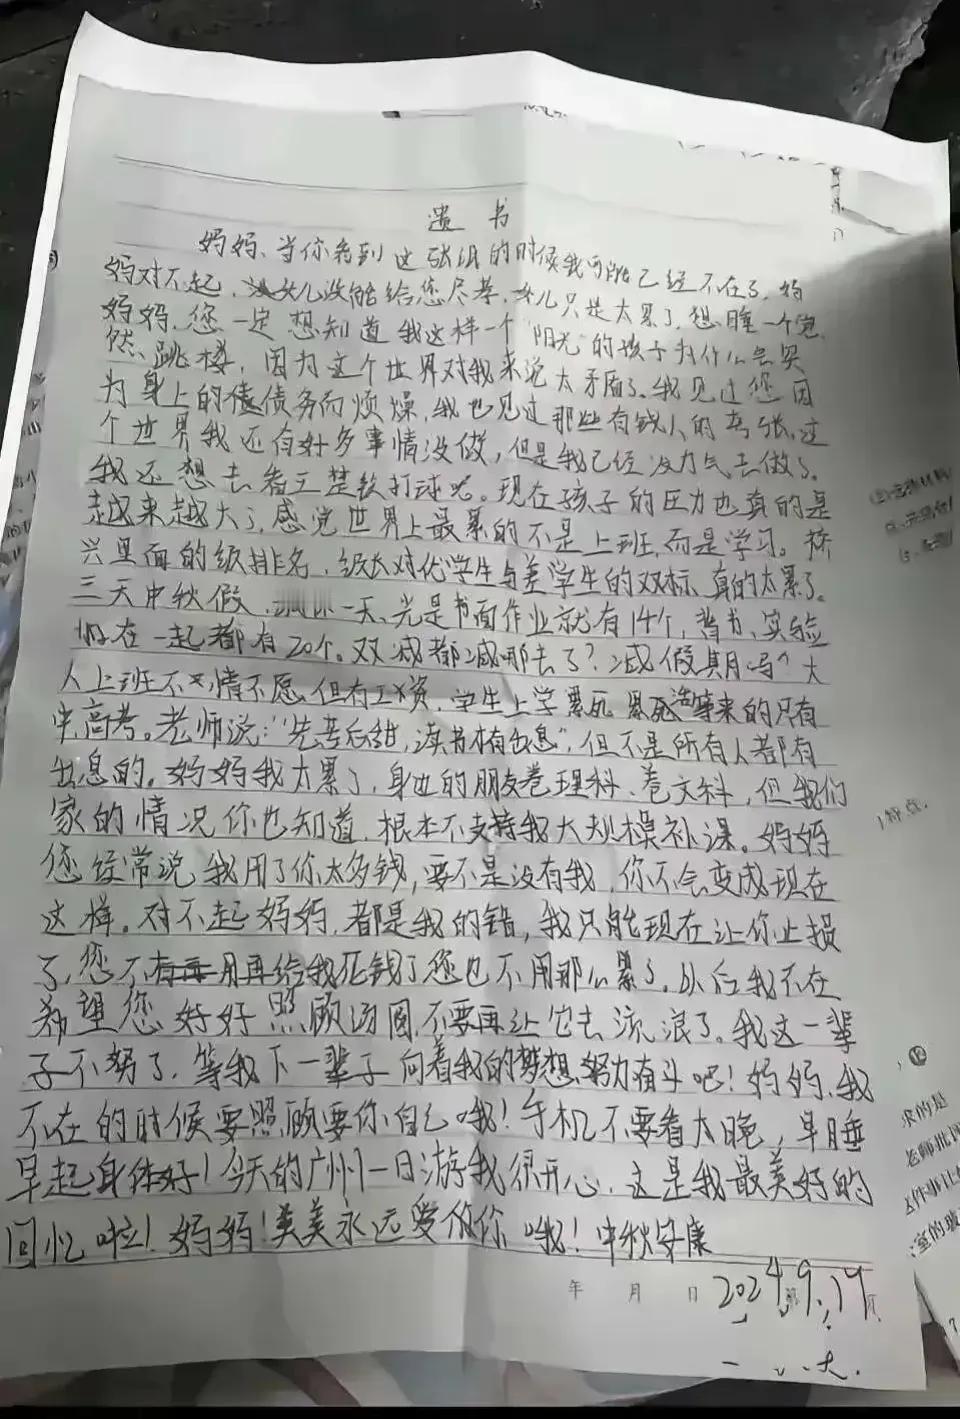 遗书
妈妈、当你看到这张纸的时候我可能已经不在了，妈
妈对不起，女儿没能给您尽孝，女儿只是太累了，想睡一个觉
妈妈，您一定想知道我这样一个“阳光”的孩子为什么会突
然跳楼，因为这个世界对我来说太矛盾了。我见过您因
为身上的债务而烦燥，我也见过那些有钱人的夸张，这
个世界我还有好多事情没做，但是我已经没力气去做了。
我还想去看王楚钦打球呢。现在孩子的压力也真的是
越来越大了，感觉世界上最累的不是上班，而是学习。桥
兴里面的级排名，级长对优学生与差学生的双标，真的太累了。
三天中秋假，一天，光是书面作业就有14个，普书、实验
加在一起都有20个。双减都减哪去了？减假期吗？大
人上班不情不愿但有工资，学生上学累死累死等来的只有
中高考。老师说：“先苦后甜，读书才有出息”，但不是所有人都有
出息的。妈妈我太累了，身边的朋友卷理科、卷文科，但我们
家的情况你也知道，根本不支持我大规模补课。妈妈
您经常说，我用了你太多钱，要不是没有我，你不会变成现在
这样。对不起妈妈，都是我的错，我只能现在让你止损
了，您不用再给我花钱了您也不用那么累了。以后我不在
希望您好好照顾汤圆，不要再让它去流浪了。我这一辈
子不努了，等我下一辈子向着我的梦想努力奋斗吧！妈妈，我
不在的时候要照顾要你自己哦！手机不要看太晚，早睡
早起身体好！今天的广州一日游我很开心，这是我最美好的
回忆啦！妈妈！美美永远爱你哦！中秋安康
年 月 日 2024.9.17